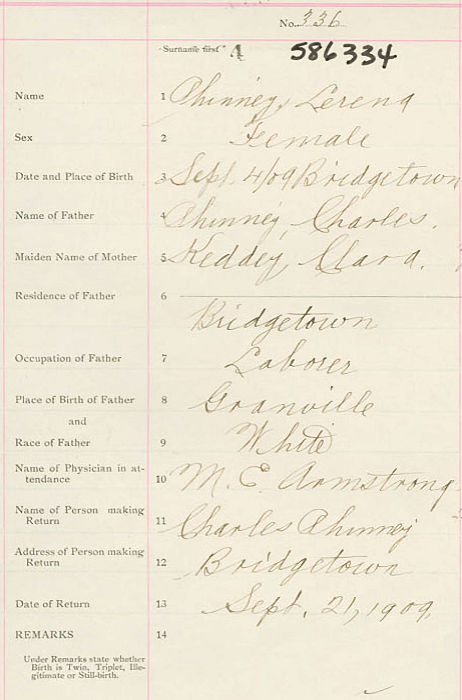 No. 336
Surname first 4 586334
Name 1 Phinney, Lerena
Sex 2 Female
Date and Place of Birth 3 Sept. 4/09 Bridgetown
Name of Father 4 Phinney, Charles.
Maiden Name of Mother 5 Keddey, Clara.
Residence of Father 6
Bridgetown
Occupation of Father 7 Laborer
Place of Birth of Father 8 Granville
and
Race of Father 9 White
Name of Physician in at-
tendance 10 M. E. Armstrong
Name of Person making
Return 11 Charles Phinney
Address of Person making
Return 12 Bridgetown
Date of Return 13 Sept. 21, 1909.
REMARKS 14
Under Remarks state whether
Birth is Twin, Triplet, Ille-
gitimate or Still-birth.